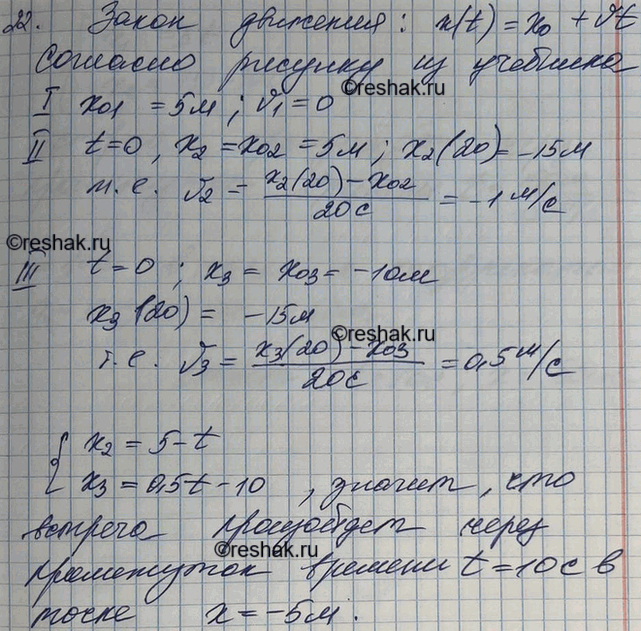 22. Закон движения: x(t) = x₀ + vt
Согласно рисунку из учебника
©reshak.ru
I x₀₁ = 5м; v₁ = 0
II t=0, x₂ = x₀₂ = 5м; x₂(20) = -15м
т.е. v₂ = (x₂(20) - x₀₂)/20с = -1 м/с
©reshak.ru
III t=0; x₃ = x₀₃ = -10м
x₃(20) = -15м
©reshak.ru
т.е. v₃ = (x₃(20) - x₀₃)/20с = 0,5 м/с
{ x₂ = 5-t
x₃ = 0,5t-10, значит, что
встреча произойдет через
©reshak.ru
промежуток времени t=10с в
точке x = -5м.